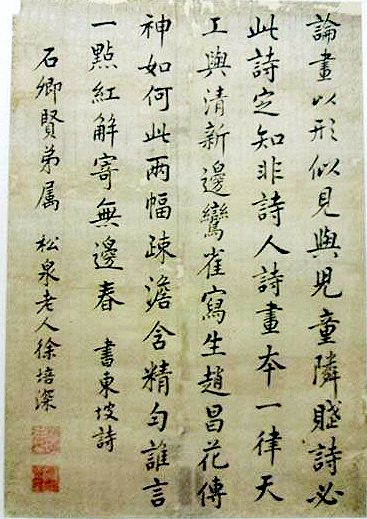 論畫以形似見與兒童隣賦詩必
此詩定知非詩人詩畫本一律天
工與清新邊鸞雀寫生趙昌花傳
神如何此两幅疎澹含精匀誰言
一點紅解寄無邊春 書東坡詩
石卿賢弟属 松泉老人徐培深